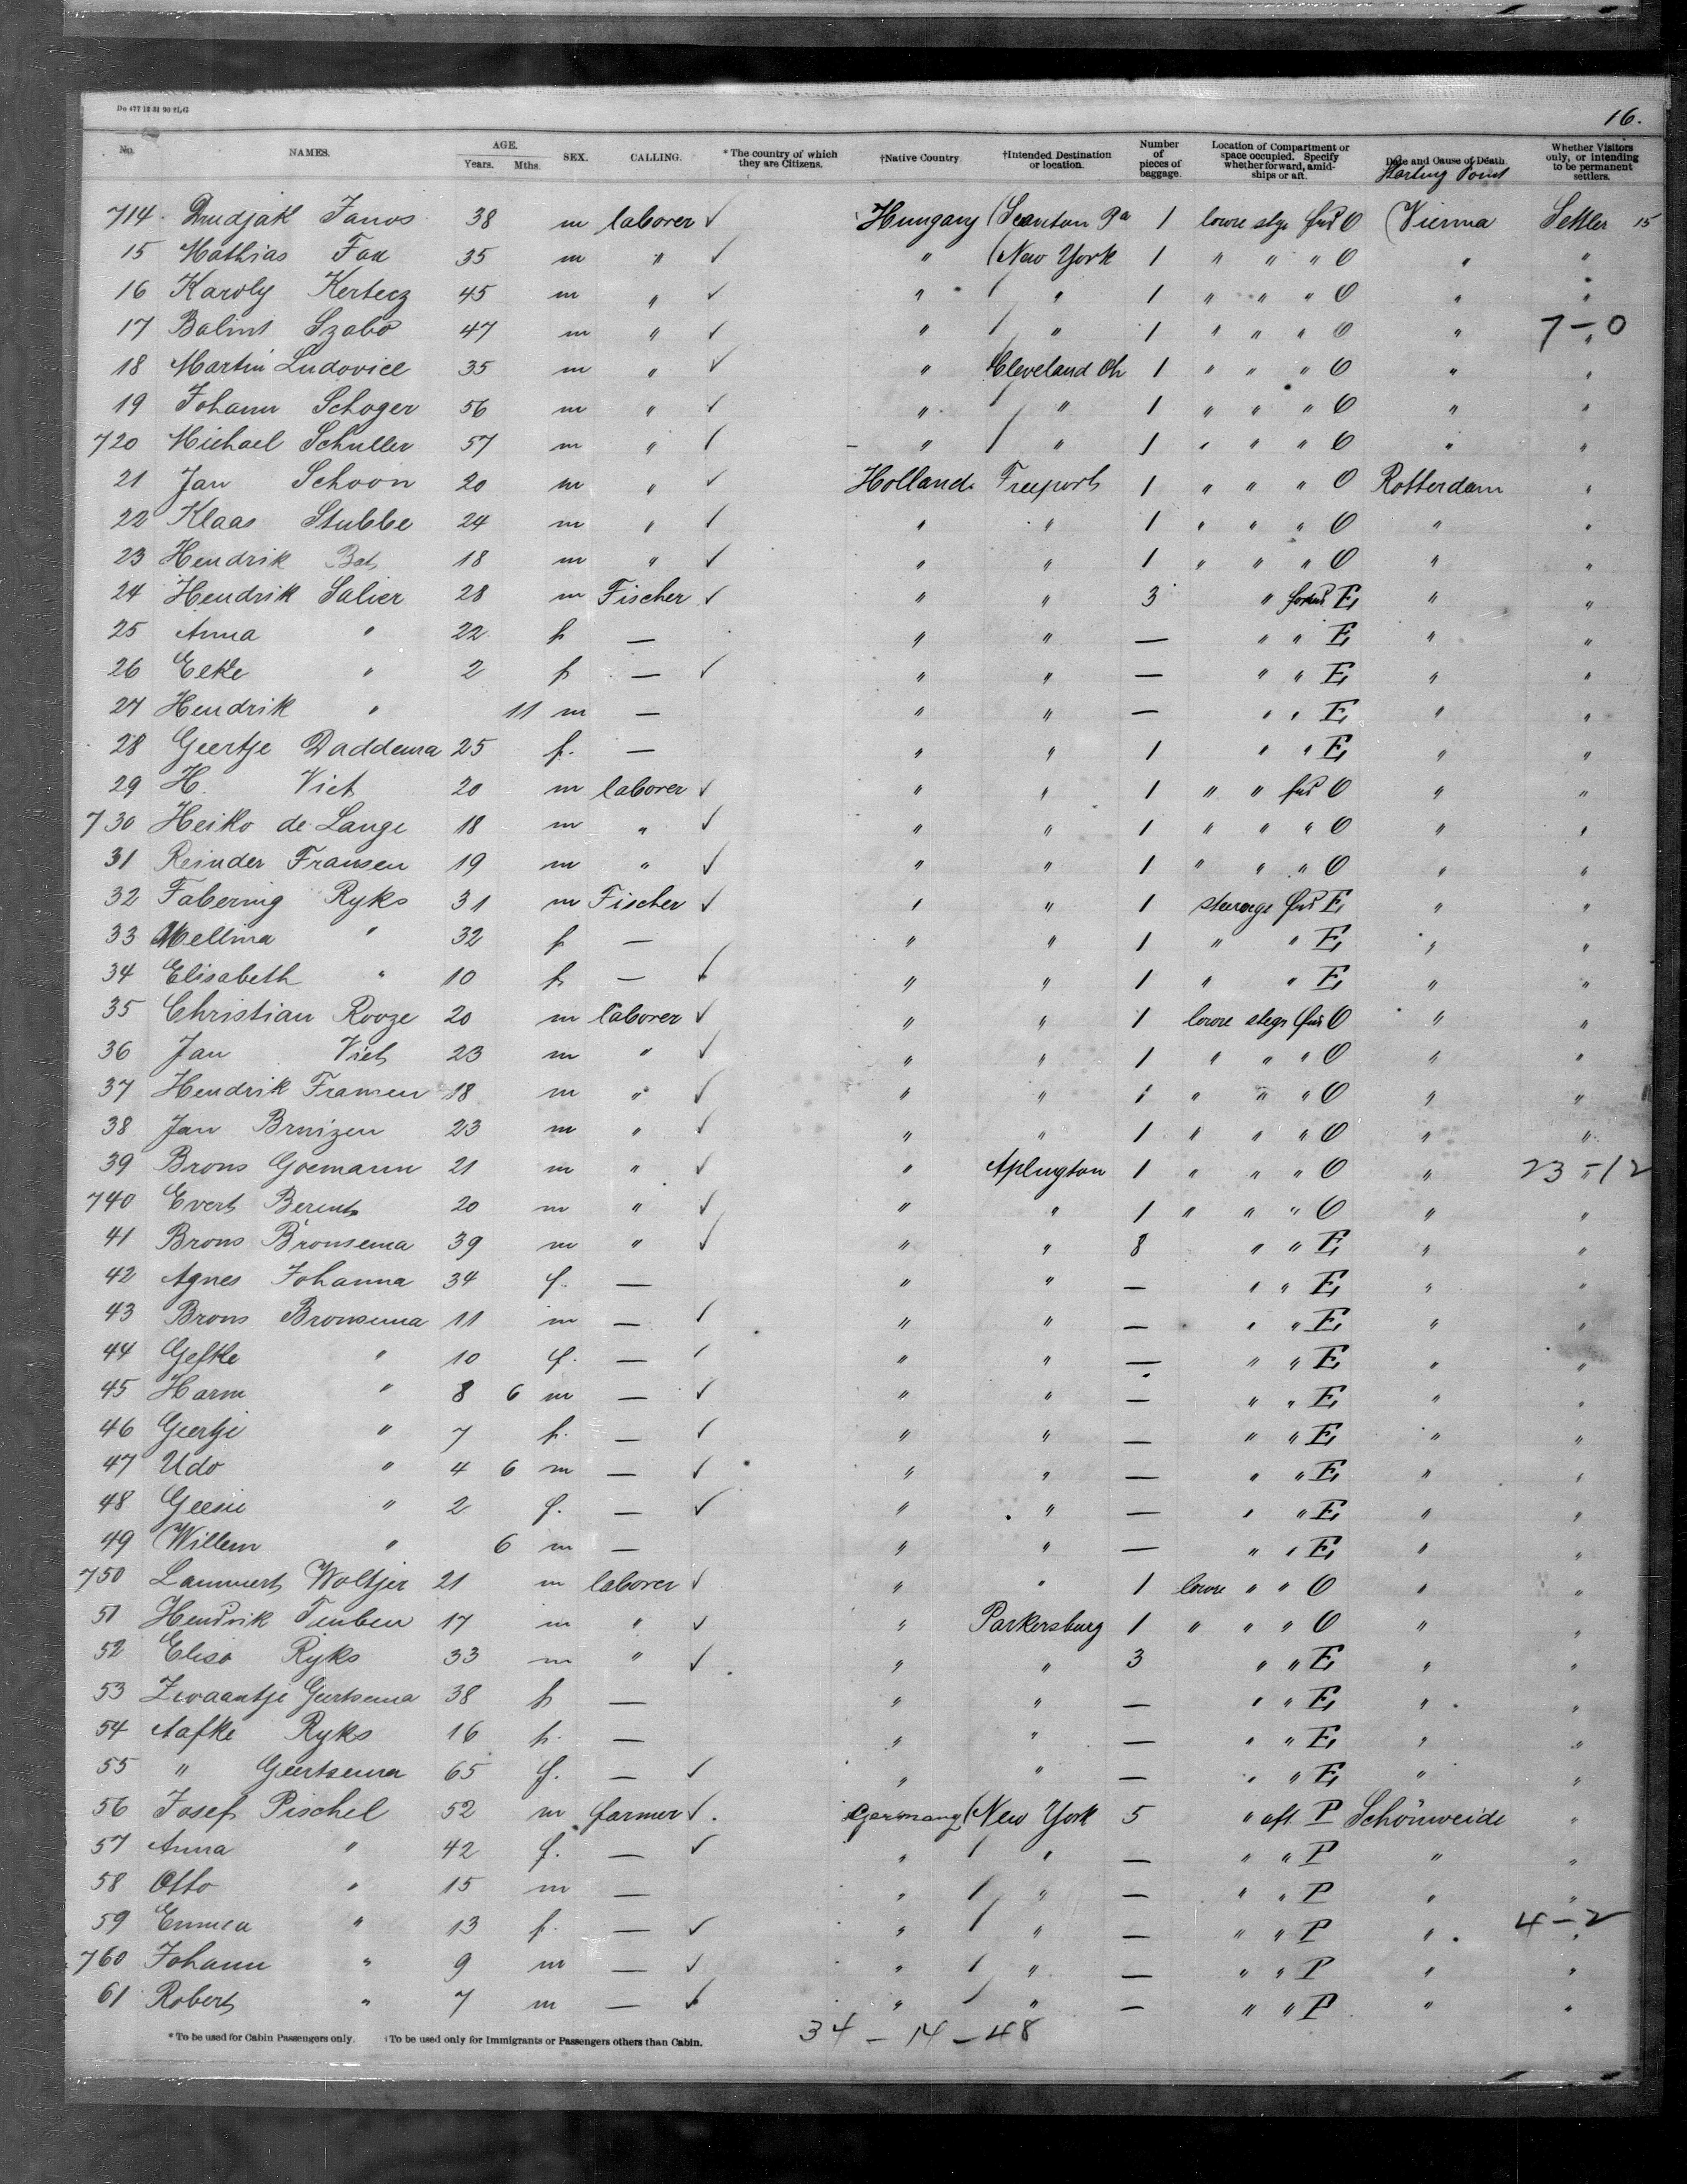 Do 477 12 31 90 fLG
16.
No. NAMES. AGE. Years. Mths. SEX. CALLING. *The country of which they are Citizens. †Native Country. †Intended Destination or location. Number of pieces of baggage. Location of Compartment or space occupied. Specify whether forward, amidships or aft. Date and Cause of Death. Starting Point Whether Visitors only, or intending to be permanent settlers.
714 Drudjak Janos 38 m laborer ✓ Hungary (Scanton Pa 1 lowre stge fwd O (Vienna Settler 15
15 Mathias Fax 35 m " ✓ " (New York 1 " " " O " "
16 Karoly Kertecz 45 m " ✓ " / " 1 " " " O " "
17 Balint Szabo 47 m " ✓ " / " 1 " " " O " 7-0 "
18 Martin Ludovice 35 m " ✓ " Cleveland Oh 1 " " " O " "
19 Johann Schoger 56 m " ✓ " / " 1 " " " O " "
720 Michael Schuller 57 m " ✓ " / " 1 " " " O " "
21 Jan Schoon 20 m " ✓ Holland Freeport 1 " " " O Rotterdam "
22 Klaas Stubbe 24 m " ✓ " " 1 " " " O " "
23 Hendrik 18 m " ✓ " " 1 " " " O " "
24 Hendrik Salier 28 m Fischer ✓ " " 3 " forwd E " "
25 Anna " 22 f — " " — " " E " "
26 Eelke " 2 f — ✓ " " — " " E " "
27 Hendrik " 11 m — " " — " " E " "
28 Geertje Daddema 25 f. — " " 1 " " E " "
29 H. Viet 20 m laborer ✓ " " 1 " " fwd O " "
730 Heiko de Lange 18 m " ✓ " " 1 " " " O " "
31 Reinder Fransen 19 m " ✓ " " 1 " " " O " "
32 Fabering Ryks 31 m Fischer ✓ " " 1 steerage fwd E " "
33 Mellina " 32 f — " " 1 " " E " "
34 Elisabeth " 10 f — ✓ " " 1 " " E " "
35 Christian Rooze 20 m laborer ✓ " " 1 lowre stege fwd O " "
36 Jan Viet 23 m " ✓ " " 1 " " " O " "
37 Hendrik Fransen 18 m " ✓ " " 1 " " " O " "
38 Jan Bruizen 23 m " ✓ " " 1 " " " O " "
39 Brons Goemann 21 m " ✓ " Aplington 1 " " " O " 23-12
740 Evert Berents 20 m " ✓ " " 1 " " " O " "
41 Brons Bronsema 39 m " ✓ " " 8 " " E " "
42 Agnes Johanna 34 f. — " " — " " E " "
43 Brons Bronsema 11 m — ✓ " " — " " E " "
44 Gefke " 10 f. — ✓ " " — " " E " "
45 Harm " 8 6 m — ✓ " " — " " E " "
46 Geertje " 7 f. — ✓ " " — " " E " "
47 Udo " 4 6 m — ✓ " " — " " E " "
48 Geesie " 2 f. — ✓ " " — " " E " "
49 Willem " 6 m — " " — " " E " "
750 Lammert Woltjer 21 m laborer ✓ " " 1 lowre " " O " "
51 Hendrik Tenben 17 m " ✓ " Parkersburg 1 " " " O " "
52 Eliso Ryks 33 m " ✓ " " 3 " " E " "
53 Zwaantje Geertsema 38 f — " " — " " E " "
54 Aafke Ryks 16 f. — " " — " " E " "
55 " Geertsema 65 f. — ✓ " " — " " E " "
56 Josef Pischel 52 m farmer ✓ Germany (New York 5 " aft P Schönweide "
57 Anna " 42 f. — ✓ " / " — " " P " "
58 Otto " 15 m — " / " — " " P " "
59 Emma " 13 f. — ✓ " / " — " " P " 4-2 "
760 Johann " 9 m — ✓ " / " — " " P " "
61 Robert " 7 m — ✓ " / " — " " P " "
*To be used for Cabin Passengers only. †To be used only for Immigrants or Passengers others than Cabin. 34 – 14 – 48